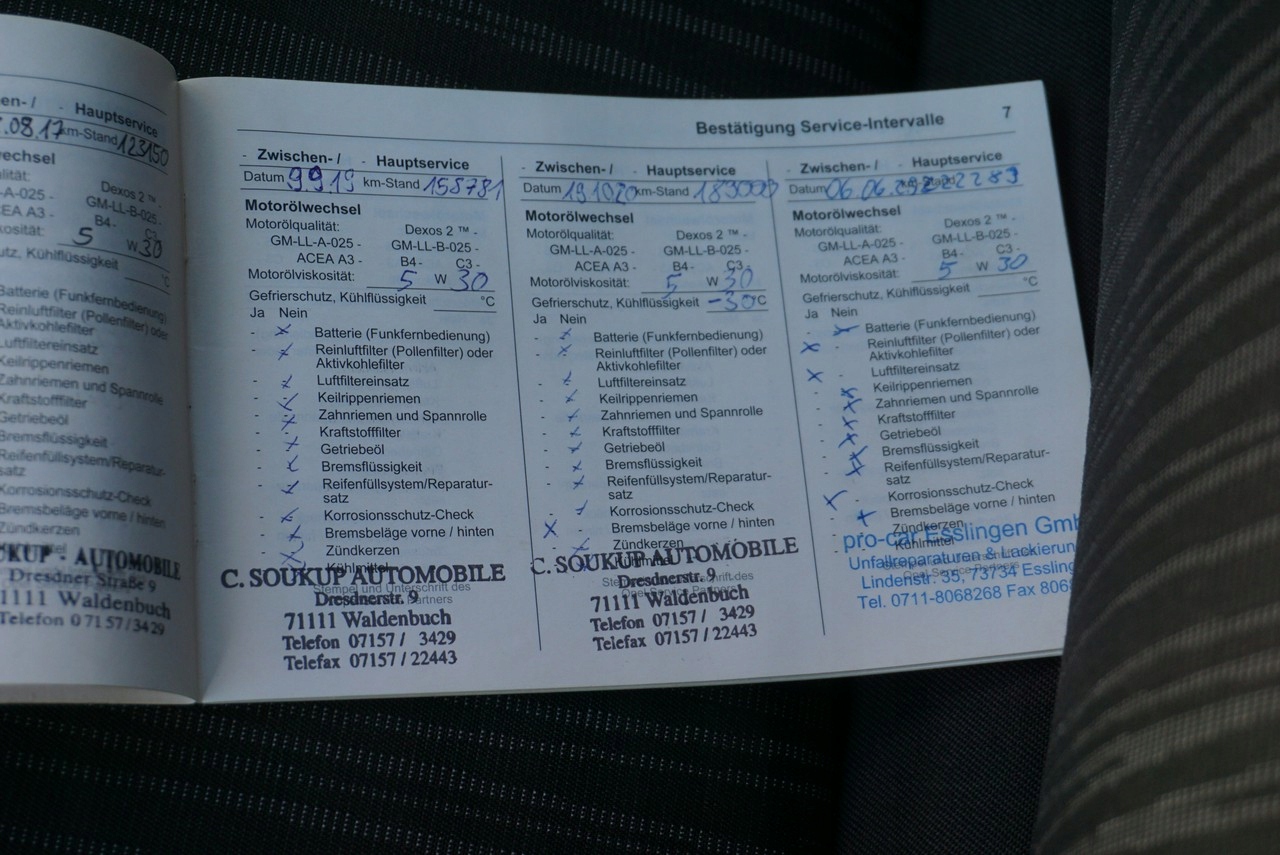 en- / - Hauptservice
.08.17 km-Stand 123150
echsel
alität:
Dexos 2 ™ -
-A-025 - GM-LL-B-025 -
EA A3 - B4 - C3 -
osität: 5 W 30
utz, Kühlflüssigkeit °C
Batterie (Funkfernbedienung)
Reinluftfilter (Pollenfilter) oder
Aktivkohlefilter
Luftfiltereinsatz
Keilrippenriemen
Zahnriemen und Spannrolle
Kraftstofffilter
Getriebeöl
Bremsflüssigkeit
Reifenfüllsystem/Reparatur-
satz
Korrosionsschutz-Check
Bremsbeläge vorne / hinten
Zündkerzen
UKUP - AUTOMOBILE
Dresdner Straße 9
1111 Waldenbuch
Telefon 07157/3429
Bestätigung Service-Intervalle 7
- Zwischen- / - Hauptservice
Datum 9 9 19 km-Stand 158781
Motorölwechsel
Motorölqualität: Dexos 2 ™ -
GM-LL-A-025 - GM-LL-B-025 -
ACEA A3 - B4 - C3 -
Motorölviskosität: 5 W 30
Gefrierschutz, Kühlflüssigkeit °C
Ja Nein
- x Batterie (Funkfernbedienung)
- x Reinluftfilter (Pollenfilter) oder
Aktivkohlefilter
- x Luftfiltereinsatz
- x Keilrippenriemen
- x Zahnriemen und Spannrolle
- x Kraftstofffilter
- x Getriebeöl
- x Bremsflüssigkeit
- x Reifenfüllsystem/Reparatur-
satz
- x Korrosionsschutz-Check
- x Bremsbeläge vorne / hinten
- x Zündkerzen
Kühlmittel
C. SOUKUP AUTOMOBILE
Stempel und Unterschrift des
Dresdnerstr. 9
Partners
71111 Waldenbuch
Telefon 07157 / 3429
Telefax 07157 / 22443
- Zwischen- / - Hauptservice
Datum 19 10 20 km-Stand 183000
Motorölwechsel
Motorölqualität: Dexos 2 ™ -
GM-LL-A-025 - GM-LL-B-025 -
ACEA A3 - B4 - C3 -
Motorölviskosität: 5 W 30
Gefrierschutz, Kühlflüssigkeit -30 °C
Ja Nein
- x Batterie (Funkfernbedienung)
- x Reinluftfilter (Pollenfilter) oder
Aktivkohlefilter
- x Luftfiltereinsatz
- x Keilrippenriemen
- x Zahnriemen und Spannrolle
- x Kraftstofffilter
- x Getriebeöl
- x Bremsflüssigkeit
- x Reifenfüllsystem/Reparatur-
satz
- x Korrosionsschutz-Check
x - Bremsbeläge vorne / hinten
- x Zündkerzen
C. SOUKUP AUTOMOBILE
Dresdnerstr. 9
71111 Waldenbuch
Telefon 07157 / 3429
Telefax 07157 / 22443
- Zwischen- / - Hauptservice
Datum 06.06.
Motorölwechsel
Motorölqualität: Dexos 2 ™ -
GM-LL-A-025 - GM-LL-B-025 -
ACEA A3 - B4 - C3 -
Motorölviskosität: 5 W 30
Gefrierschutz, Kühlflüssigkeit °C
Ja Nein
- x Batterie (Funkfernbedienung)
x - Reinluftfilter (Pollenfilter) oder
Aktivkohlefilter
x - Luftfiltereinsatz
- x Keilrippenriemen
- x Zahnriemen und Spannrolle
- x Kraftstofffilter
- x Getriebeöl
- x Bremsflüssigkeit
- x Reifenfüllsystem/Reparatur-
satz
x - Korrosionsschutz-Check
- x Bremsbeläge vorne / hinten
Zündkerzen
Kühlmittel
pro-car Esslingen Gmb
Unfallreparaturen & Lackierun
Lindenstr. 35, 73734 Essling
Tel. 0711-8068268 Fax 806